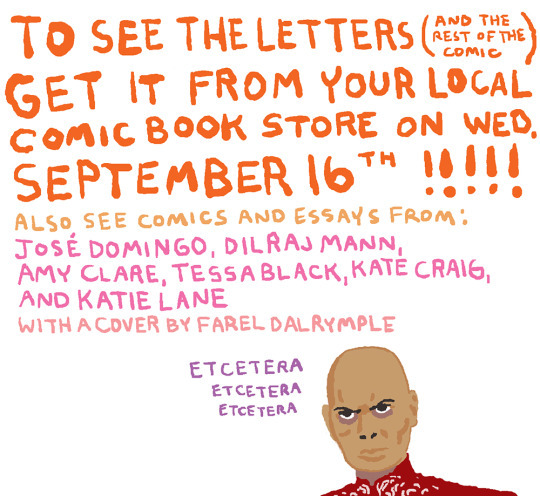 TO SEE THE LETTERS (AND THE REST OF THE COMIC)
GET IT FROM YOUR LOCAL
COMIC BOOK STORE ON WED.
SEPTEMBER 16TH !!!!!
ALSO SEE COMICS AND ESSAYS FROM:
JOSÉ DOMINGO, DILRAJ MANN,
AMY CLARE, TESSA BLACK, KATE CRAIG,
AND KATIE LANE
WITH A COVER BY FAREL DALRYMPLE
ETCETERA
ETCETERA
ETCETERA